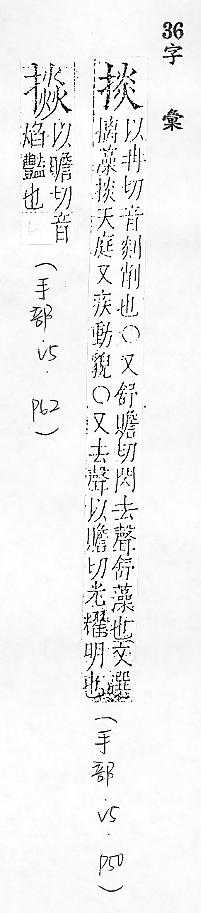 36
字彙
掞
以冉切音剡削也○又舒贍切閃去聲舒藻也文選
摛藻掞天庭又疾動貌○又去聲以贍切光耀明也
(手部 v5. p50)
以贍切音
焰豔也
(手部 v5. p62)